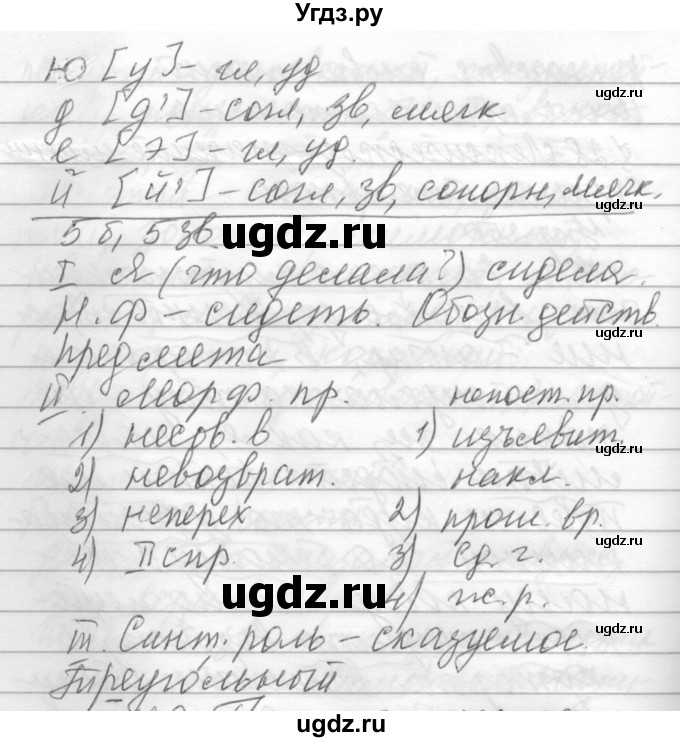 Угдз.ру
ю [у] - гл, уд
д [д'] - согл, зв, мягк
е [э] - гл, уд.
й [й'] - согл, зв, сонорн, мягк.
5 б, 5 зв
I Я (что делала?) сидела.
Н.ф - сидеть. Обозн. действ.
предмета
II. Морф. пр. непост. пр.
1) несов. в 1) изъявит.
2) невозврат. накл.
3) неперех 2) прош. вр.
4) II спр. 3) ед. г.
4) ж.р.
III. Синт. роль - сказуемое.
Треуго́льный
ugdz.ru
ugdz.ru
ugdz.ru
ugdz.ru
ugdz.ru
ugdz.ru
ugdz.ru
ugdz.ru
ugdz.ru